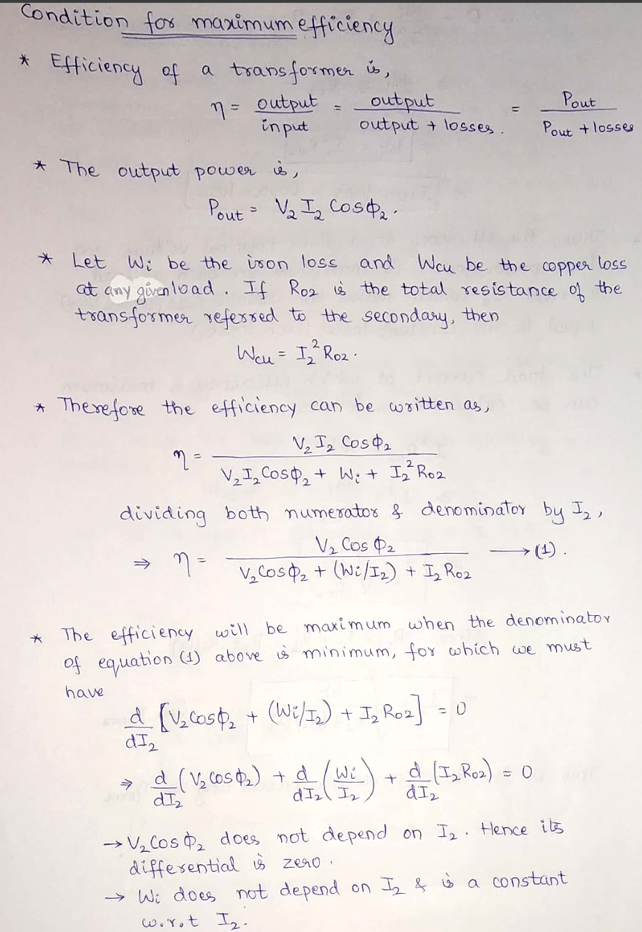 Condition for maximum efficiency
* Efficiency of a transformer is,
η = output/input = output/(output + losses) . = Pout/(Pout + losses)
* The output power is,
Pout = V₂ I₂ Cosφ₂.
* Let Wi be the iron loss and Wcu be the copper loss
at any given load. If R02 is the total resistance of the
transformer referred to the secondary, then
Wcu = I₂² R02.
* Therefore the efficiency can be written as,
η = V₂ I₂ Cosφ₂/(V₂ I₂ Cosφ₂ + Wi + I₂² R02)
dividing both numerator & denominator by I₂,
⇒ η = V₂ Cos φ₂/(V₂ Cosφ₂ + (Wi/I₂) + I₂ R02) → (1).
* The efficiency will be maximum when the denominator
of equation (1) above is minimum, for which we must
have
d/dI₂ [V₂ Cosφ₂ + (Wi/I₂) + I₂ R02] = 0
⇒ d/dI₂ (V₂ Cosφ₂) + d/dI₂ (Wi/I₂) + d/dI₂ (I₂ R02) = 0
→ V₂ Cosφ₂ does not depend on I₂. Hence its
differential is zero.
→ Wi does not depend on I₂ & is a constant
w.r.t I₂.